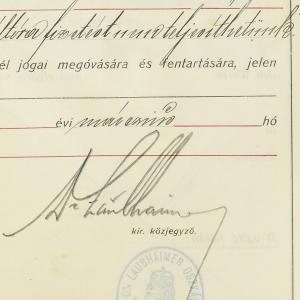 fizetést nem teljesíthetünk.
él jogai megóvására és fentartására, jelen
évi március hó
Dr Laubhaimer
kir. közjegyző.
LAUBHAIMER OSZKÁR